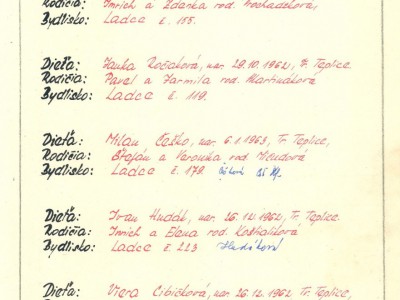 Rodičia: Imrich a Zdenka rod. Prochádzková,
Bydlisko: Ladce č. 155.
Dieťa: Janka Račaková, nar. 29.10.1962, Tr. Teplice
Rodičia: Pavel a Jarmila rod. Martináková
Bydlisko: Ladce č. 119.
Dieťa: Milan Češko, nar. 6.1.1963, Tr. Teplice,
Rodičia: Štefan a Veronika rod.
Bydlisko: Ladce č. 179
Dieťa: Ivan Hudák, nar. 26.12.1962, Tr. Teplice
Rodičia: Imrich a Elena rod. Koštialiková
Bydlisko: Ladce č. 223 Hudáková
Dieťa: Viera Cibičková, nar. 26.12.1962 Tr. Teplice